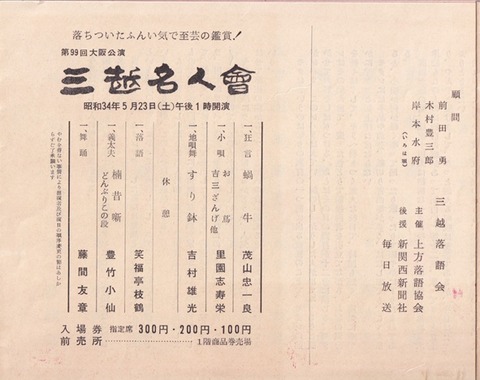 落ちついたふんい気で至芸の鑑賞！
第99回大阪公演
三越名人會
昭和34年5月23日(土)午後1時開演
一、狂言 蝸牛 茂山忠一良
一、小唄 お蔦
吉三ざんげ他 里園志寿栄
一、地唄舞 すり鉢 吉村雄光
休憩
一、落語 笑福亭枝鶴
一、義太夫 楠昔噺
どんぶりこの段 豊竹小仙
一、舞踊 藤間友章
やむを得ない事情により出演者及び演目の順序変更の節はあしか
らずご了承願います
入場券 指定席 300円・200円・100円
前売所 1階商品券売場
三越落語会
主催 上方落語協会
後援 新関西新聞社
毎日放送
顧問
前田勇
木村豊三郎
岸本水府
(いろは順)